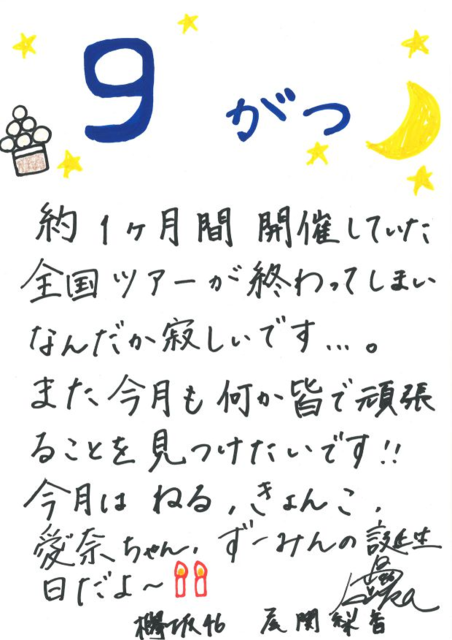 9がつ
約1ヶ月間 開催していた
全国ツアーが終わってしまい
なんだか寂しいです…。
また今月も何か皆で頑張
ることを見つけたいです!!
今月は ねる、きょんこ、
愛奈ちゃん、ずーみんの誕生
日だよ〜
欅坂46 尾関梨香